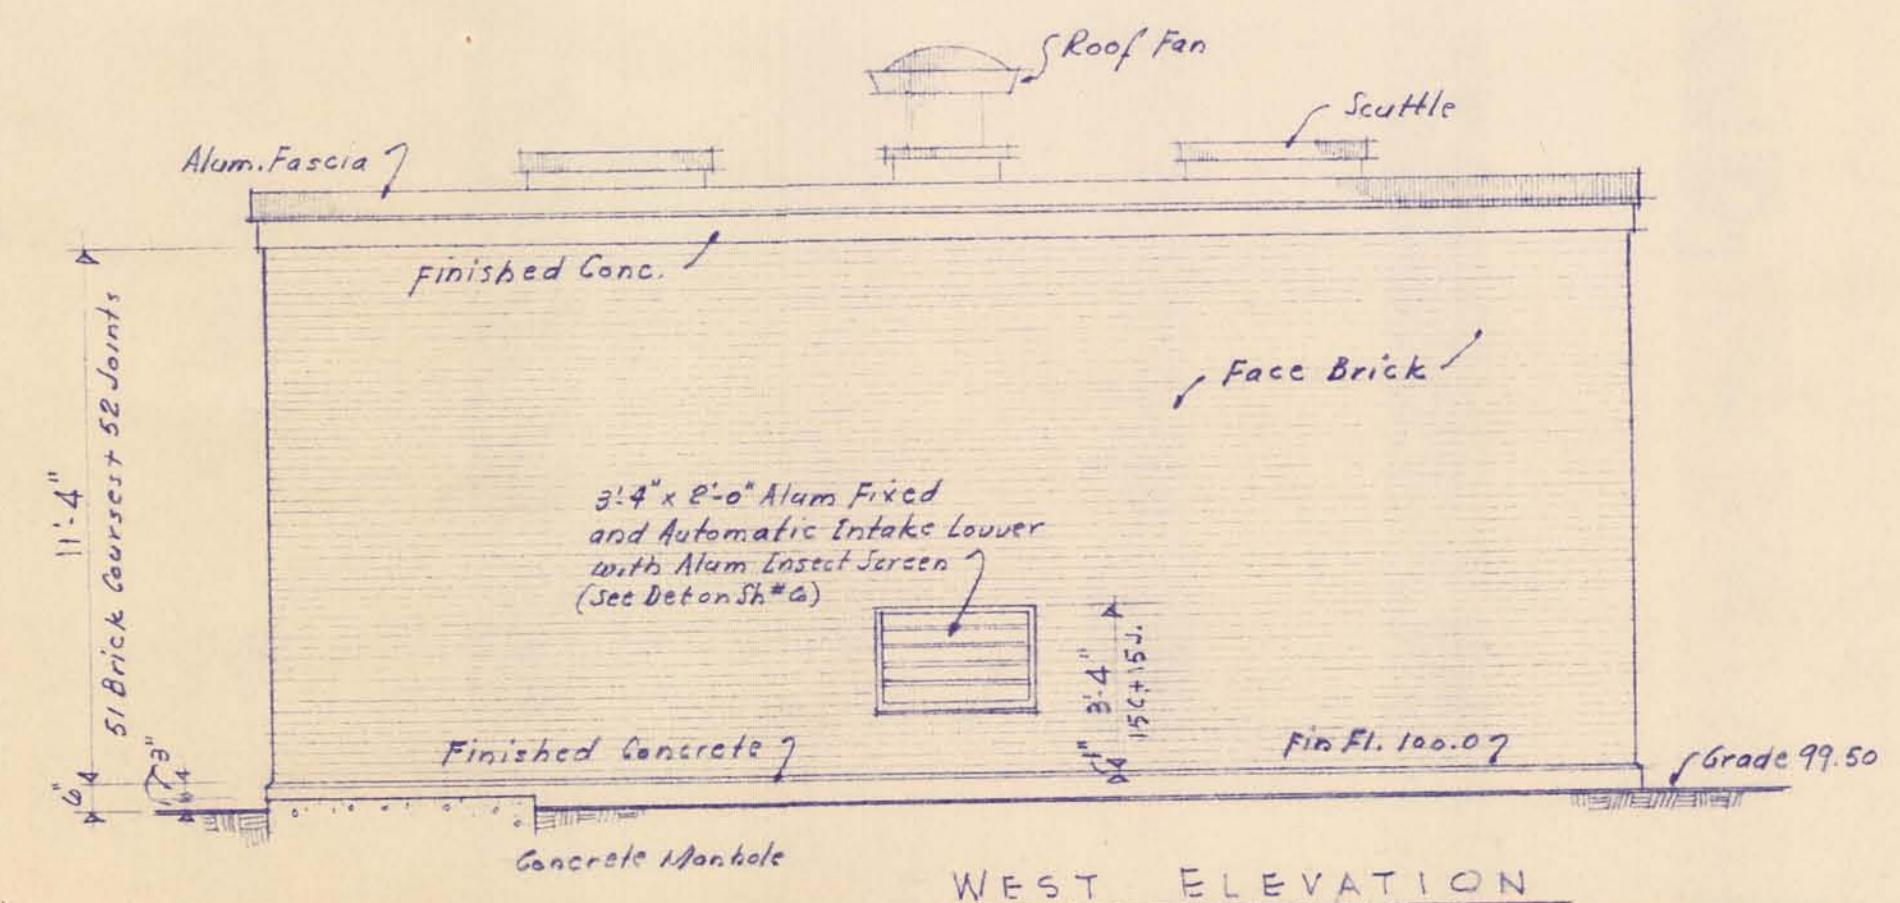 Roof Fan
Scuttle
Alum. Fascia
Finished Conc.
Face Brick
11'-4"
51 Brick Courses + 52 Joints
3'-4" x 2'-0" Alum Fixed
and Automatic Intake Louver
with Alum Insect Screen
(See Det on Sh #6)
3'-4"
15C + 15J.
1"
Finished Concrete
Fin Fl. 100.0
Grade 99.50
6"
3"
Concrete Manhole
WEST ELEVATION